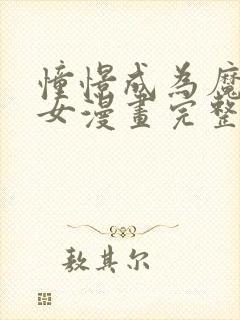 憧憬成為魔
女漫畫完整
敖其尔